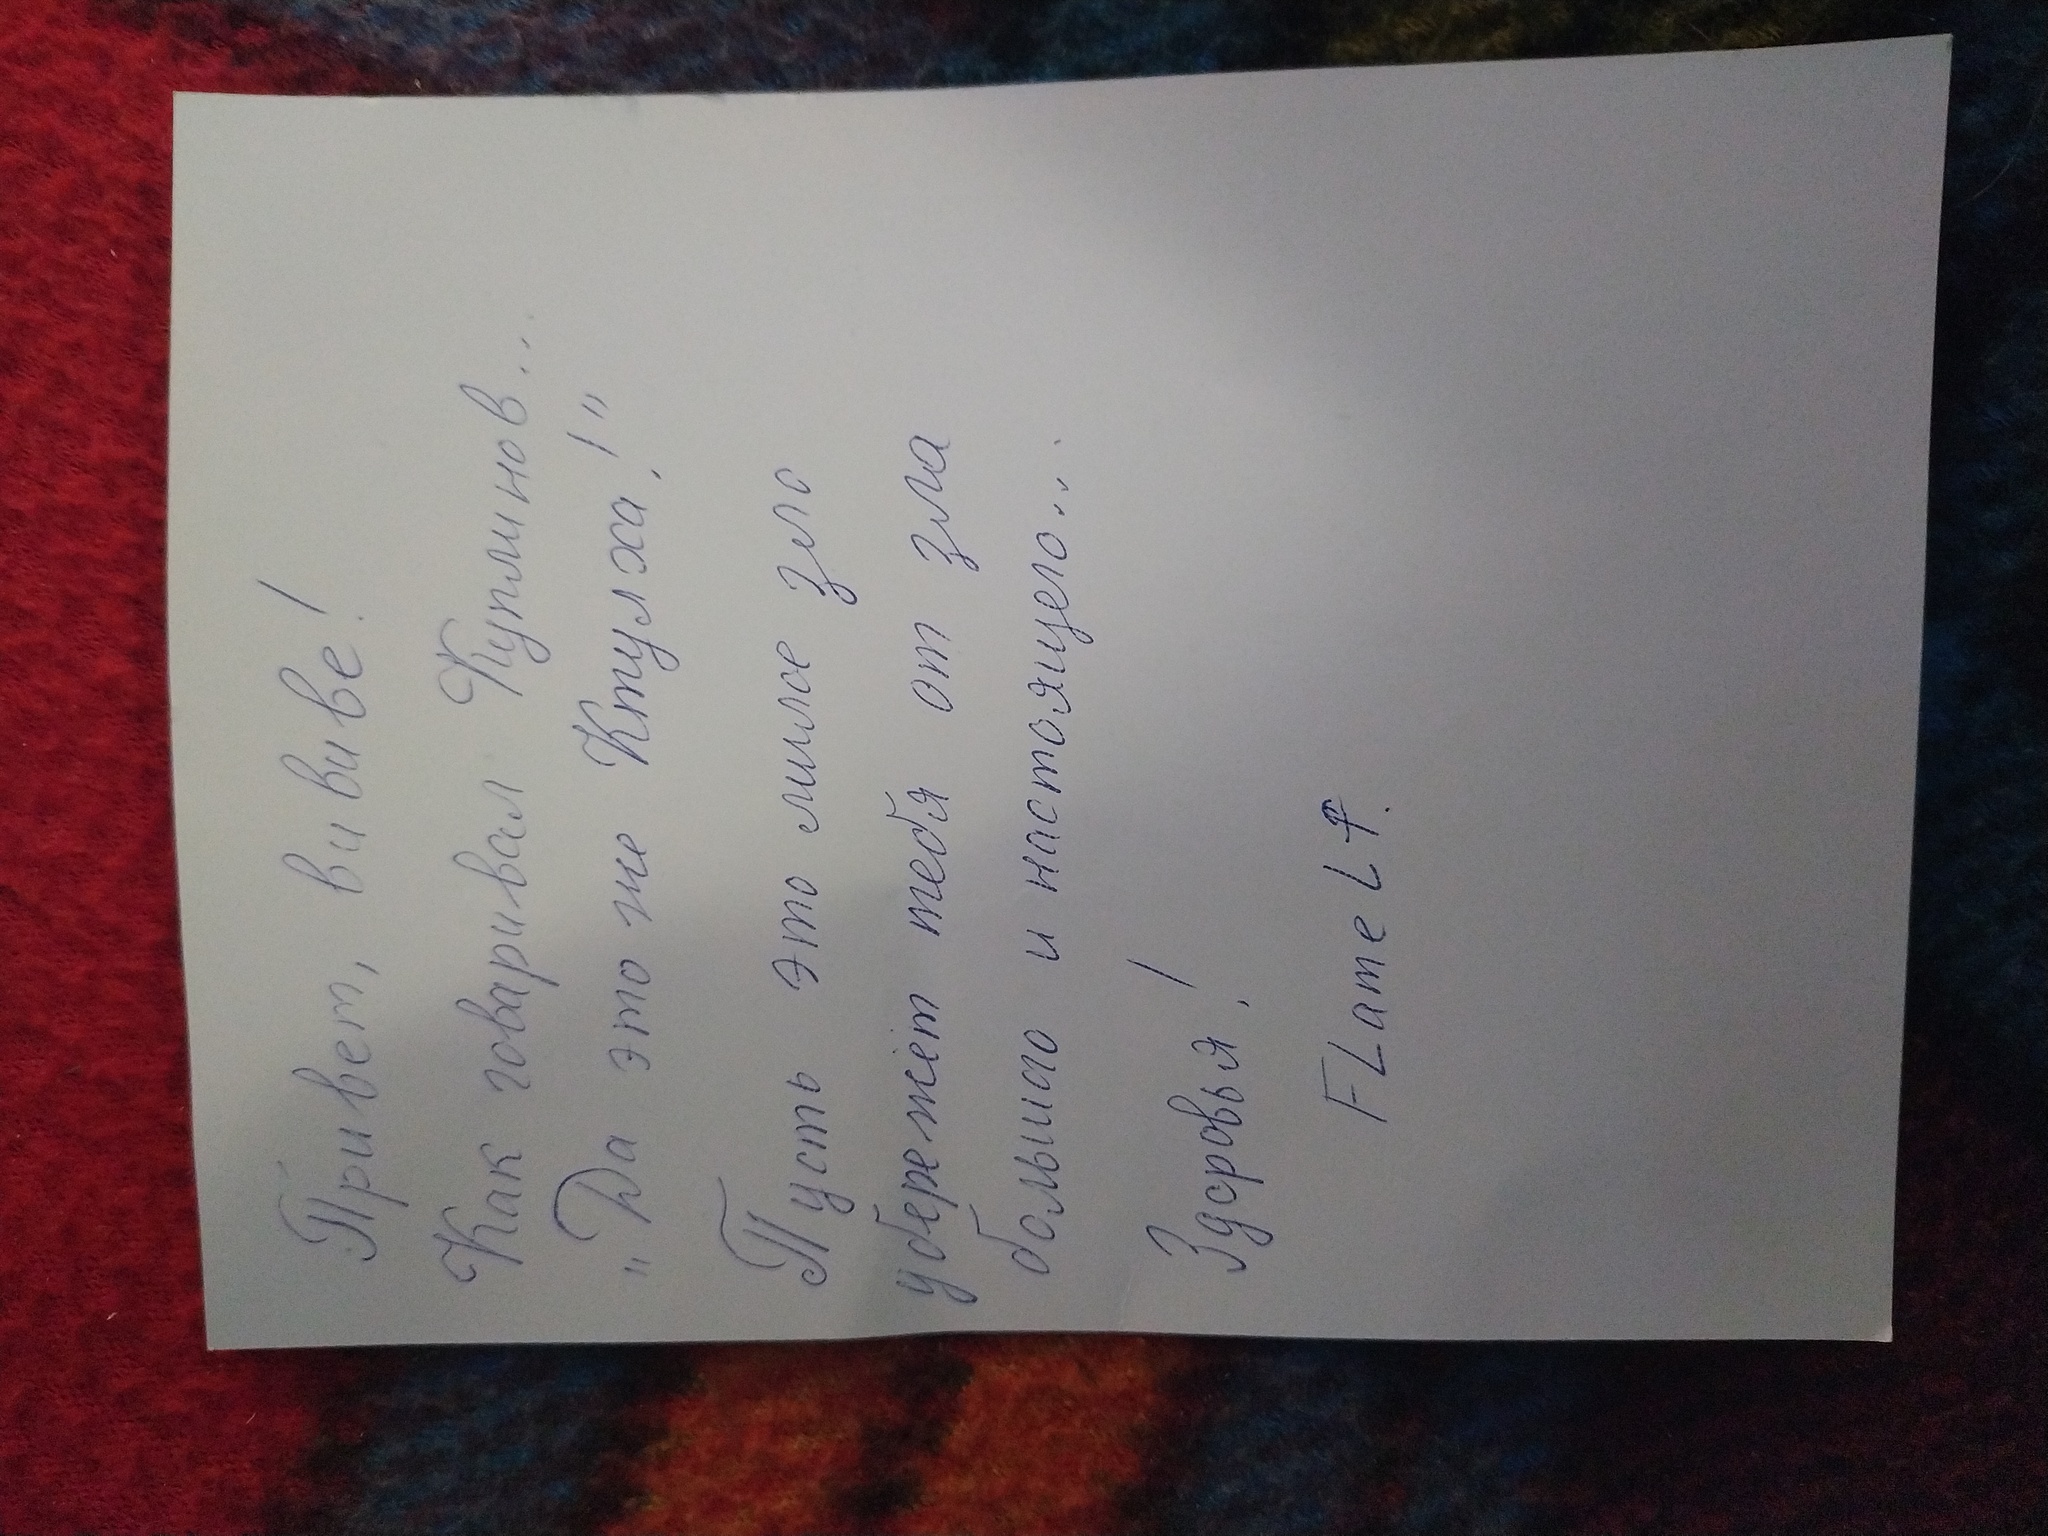 Привет, вививе!
Как говаривал Куплинов...
"Да это же Ктулха!"
Пусть это милое зло
убережёт тебя от зла
большого и настоящего...
Здоровья!
FLameLF.